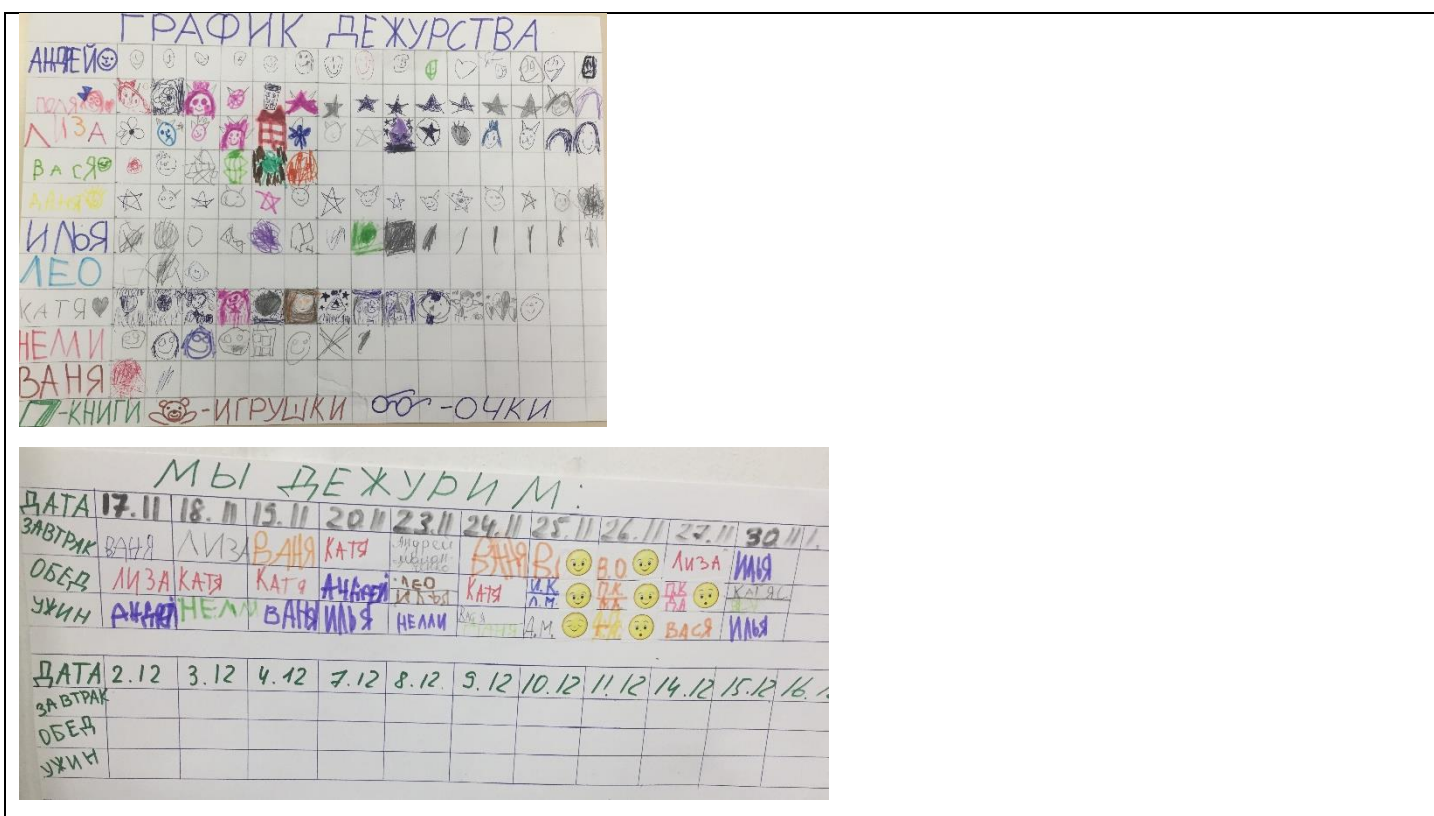 ГРАФИК ДЕЖУРСТВА
АНДРЕЙ
ПОЛЯ
ЛИЗА
ВАСЯ
ДАНЯ
ИЛЬЯ
ЛЕО
КАТЯ
НЕЛЛИ
ВАНЯ
-КНИГИ -ИГРУШКИ -ОЧКИ
МЫ ДЕЖУРИМ:
ДАТА 17.11 18.11 19.11 20.11 23.11 24.11 25.11 26.11 27.11 30.11
ЗАВТРАК ВАНЯ ЛИЗА ВАНЯ КАТЯ АНДРЕЙ ВАНЯ В.О ЛИЗА ИЛЬЯ
ОБЕД ЛИЗА КАТЯ КАТЯ АНДРЕЙ ЛЕО ИЛЬЯ КАТЯ И.К. Л.М. П.К.
УЖИН АНДРЕЙ НЕЛЛИ ВАНЯ ИЛЬЯ НЕЛЛИ А.М. ВАСЯ ИЛЬЯ
ДАТА 2.12 3.12 4.12 7.12 8.12. 9.12 10.12 11.12 14.12 15.12 16.1
ЗАВТРАК
ОБЕД
УЖИН